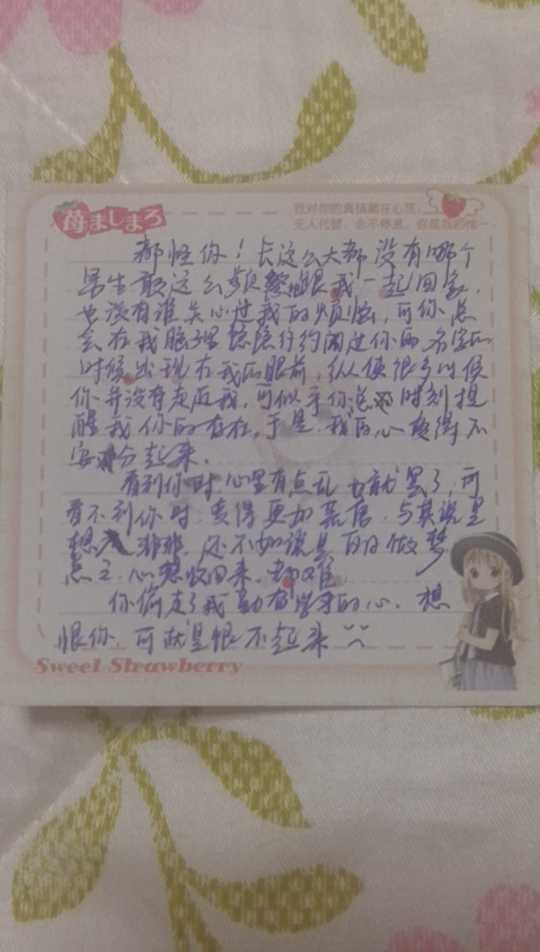 苺ましまろ
我对你的真情藏在心底
无人代替
都怪你！长这么大都没有哪个
男生敢这么频繁地跟我一起回家，
也没有谁关心过我的烦恼，可你总
会在我脑子里隐隐约约闪过你的名字的
时候出现在我的眼前，纵使很多时候
你并没有走近我，可似乎你总时刻提
醒我你的存在。于是，我的心变得不
安分起来。
看到你时心里有点乱也就罢了，可
看不到你时变得更加
想入非非，还不如说是白日做梦
点之，心想收回来，却难
你偷走了我的心，想
恨你，可就是恨不起来
Sweet Strawberry